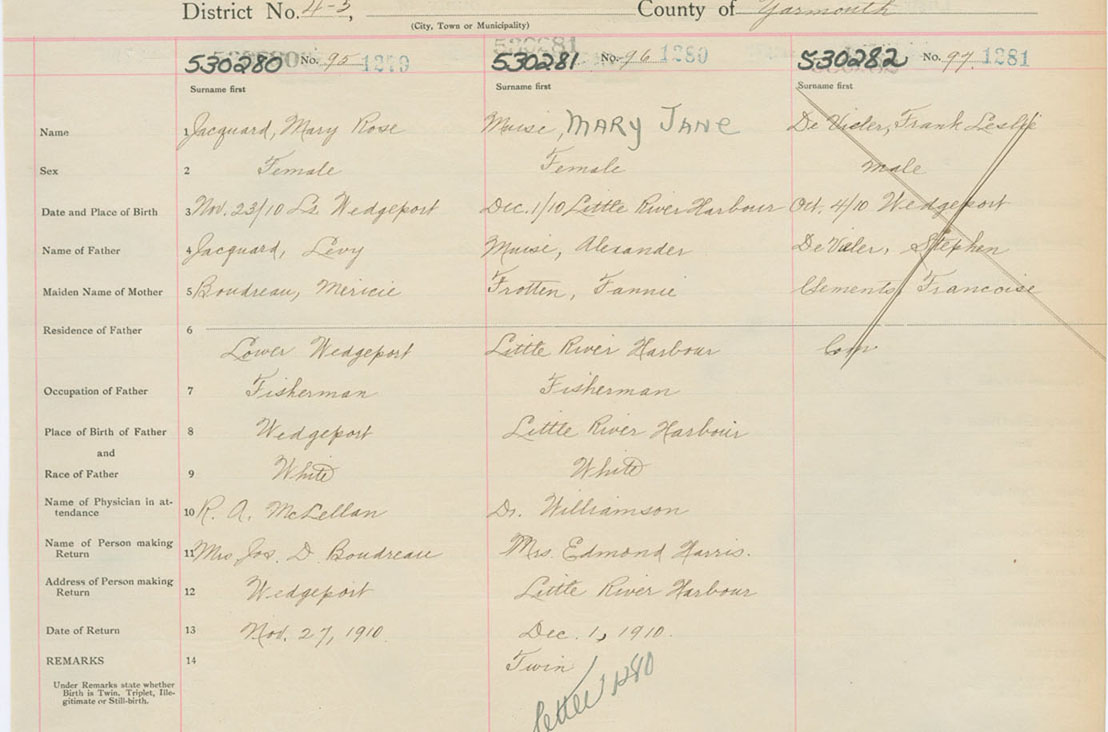 District No. 4-3, County of Yarmouth
(City, Town or Municipality)
530280 No. 95 1279 530281 No. 96 1280 530282 No. 97 1281
Surname first Surname first Surname first
Name 1 Jacquard, Mary Rose Muise, MARY JANE De Viller, Frank Leslie
Sex 2 Female Female Male
Date and Place of Birth 3 Nov. 23/10 Lr. Wedgeport Dec. 1/10 Little River Harbour Oct. 4/10 Wedgeport
Name of Father 4 Jacquard, Levy Muise, Alexander De Viller, Stephen
Maiden Name of Mother 5 Boudreau, Mericie Frotten, Fannie Clements, Francoise
Residence of Father 6
Lower Wedgeport Little River Harbour
Occupation of Father 7 Fisherman Fisherman
Place of Birth of Father 8 Wedgeport Little River Harbour
and
Race of Father 9 White White
Name of Physician in at-
tendance 10 R. A. McLellan Dr. Williamson
Name of Person making
Return 11 Mrs Jos. D. Boudreau Mrs. Edmond Harris.
Address of Person making
Return 12 Wedgeport Little River Harbour
Date of Return 13 Nov. 27, 1910. Dec. 1, 1910.
REMARKS 14 Twin
Under Remarks state whether
Birth is Twin, Triplet, Ille-
gitimate or Still-birth.
letter 1280